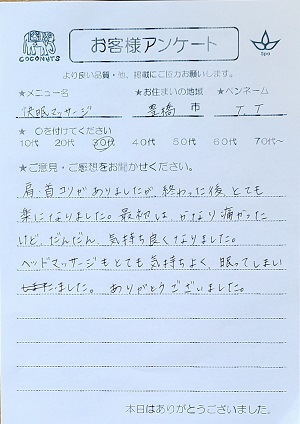 COCONUTS
お客様アンケート
Spa
より良い品質・他、掲載にご協力お願いします。
★メニュー名 ★お住まいの地域 ★ペンネーム
快眠マッサージ 豊橋 市 T.T
★ ○を付けてください
10代 20代 30代 40代 50代 60代 70代～
★ご意見・ご感想をお聞かせください。
肩、首コリがありましたが、終わった後、とても
楽になりました。最初は、かなり痛かった
けど、だんだん、気持ち良くなりました。
ヘッドマッサージもとても気持ちよく、眠ってしまい
ました。ありがとうございました。
本日はありがとうございました。